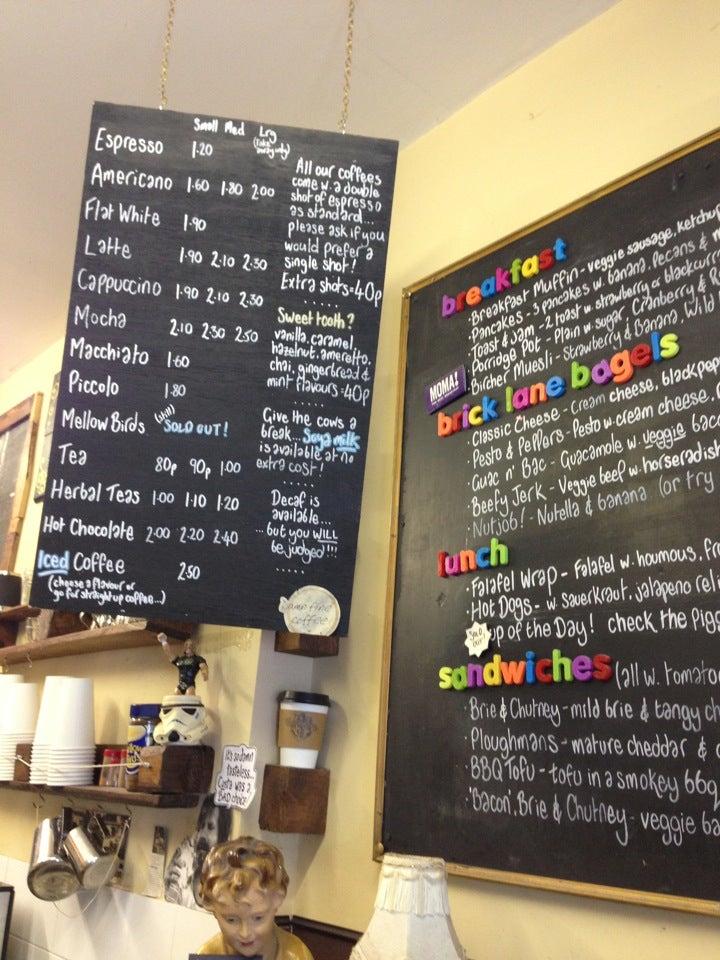 Small Med Lrg
(take away only)
Espresso 1.20
Americano 1.60 1.80 2.00
Flat White 1.90
Latte 1.90 2.10 2.30
Cappuccino 1.90 2.10 2.30
Mocha 2.10 2.30 2.50
Macchiato 1.60
Piccolo 1.80
Mellow Birds (still) SOLD OUT!
Tea 80p 90p 1.00
Herbal Teas 1.00 1.10 1.20
Hot Chocolate 2.00 2.20 2.40
Iced Coffee 2.50
(choose a flavour or
go for straight up coffee...)
All our coffees
come w. a double
shot of espresso
as standard...
please ask if you
would prefer a
single shot!
Extra shots=40p
.....
Sweet tooth?
vanilla, caramel,
hazelnut, ameretto,
chai, gingerbread &
mint flavours=40p
.....
Give the cows a
break... Soya milk
is available at no
extra cost!
.....
Decaf is
available...
...but you WILL
be judged!!!
.....
coffee
breakfast
·Breakfast Muffin - veggie sausage, ketchup
·Pancakes - 3 pancakes w. banana, pecans &
·Toast & Jam - 2 toast w. strawberry or blackcurr
·Porridge Pot - Plain w. sugar, Cranberry &
·Bircher Muesli - Strawberry & Banana, Wild
MOMA!
brick lane bagels
·Classic Cheese - Cream cheese, black pep
·Pesto & Peppers - Pesto w. cream cheese,
·Guac n' Bac - Guacamole w. veggie bac
·Beefy Jerk - Veggie beef w. horseradish
·Nutjob! - Nutella & banana (or try
lunch
·Falafel Wrap - Falafel w. houmous, fr
·Hot Dogs - w. sauerkraut, jalapeno rel
SOLD OUT
up of the Day! check the Pigg
sandwiches (all w. tomato
·Brie & Chutney - mild brie & tangy ch
·Ploughmans - mature cheddar &
·BBQ Tofu - tofu in a smokey bbq
·'Bacon', Brie & Chutney - veggie ba
It's so damn
tasteless...
Costa was a
BAD choice